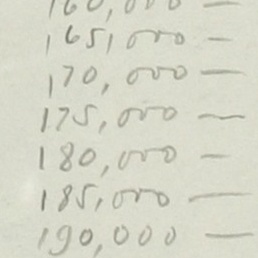 160,000 —
165,000 —
170,000 —
175,000 —
180,000 —
185,000 —
190,000 —